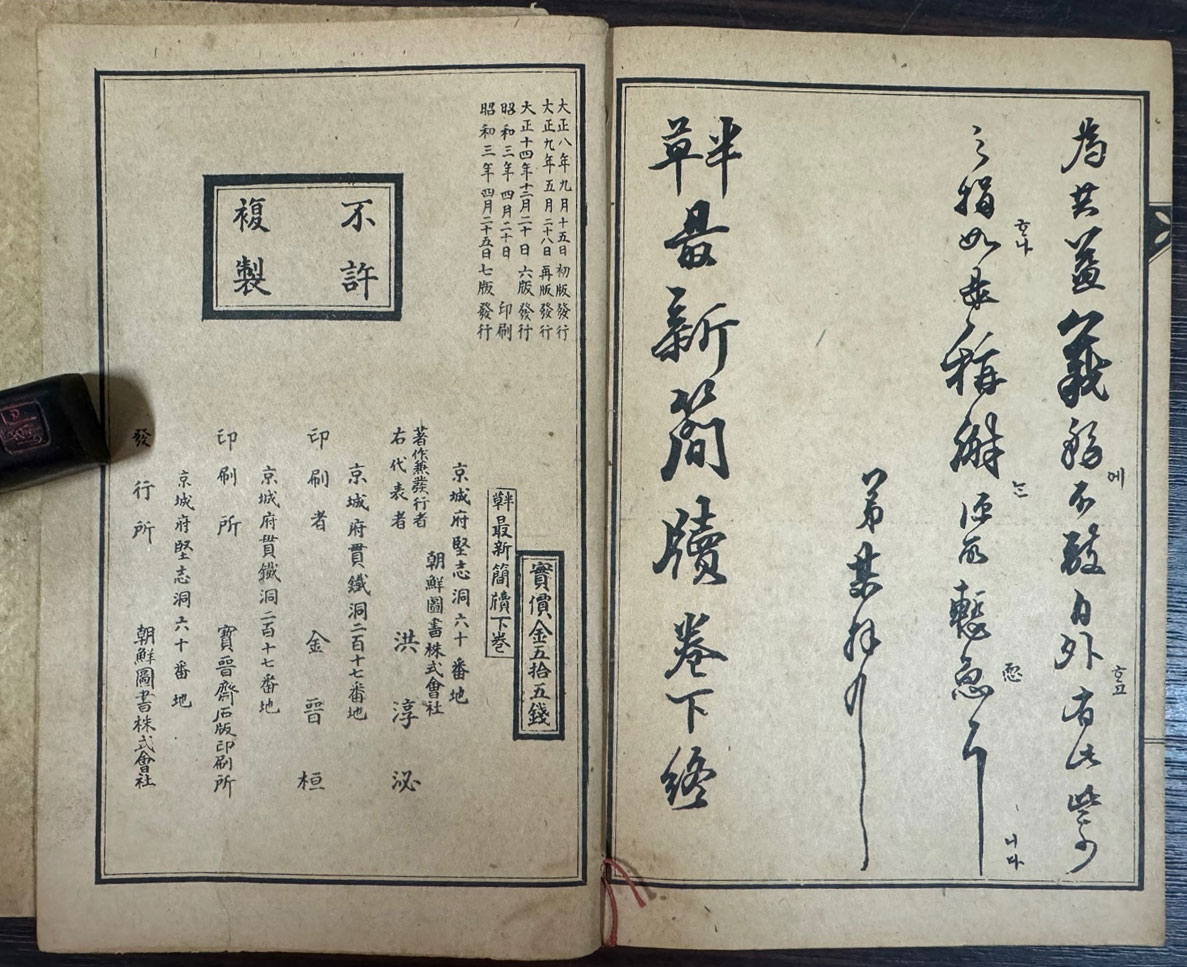 為共益義務에不敢自外호고 此些少
之捐호나如是稱
弟某拜
半草最新簡牘卷下終
大正八年九月十五日初版發行
大正九年五月二十八日再版發行
大正十四年十二月二十日六版發行
昭和三年四月二十日印刷
昭和三年四月二十五日七版發行
實價金五拾五錢
半草最新簡牘下卷
不許
複製
京城府堅志洞六十番地
朝鮮圖書株式會社
著作兼發行者
右代表者 洪淳泌
京城府貫鐵洞二百十七番地
印刷者 金晉桓
京城府貫鐵洞二百十七番地
印刷所 寶晉齋石版印刷所
京城府堅志洞六十番地
發行所 朝鮮圖書株式會社